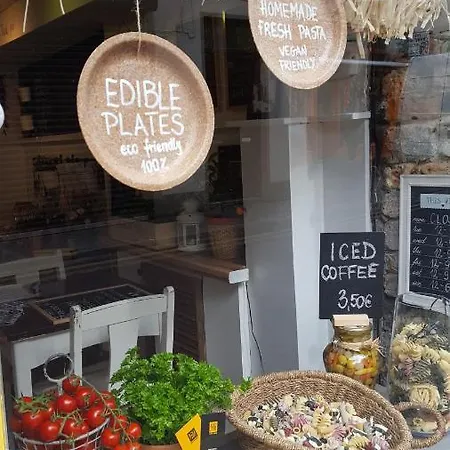 HOMEMADE
FRESH PASTA
VEGAN
FRIENDLY
EDIBLE
PLATES
eco friendly
100%
ICED
COFFEE
3,50€
CLO